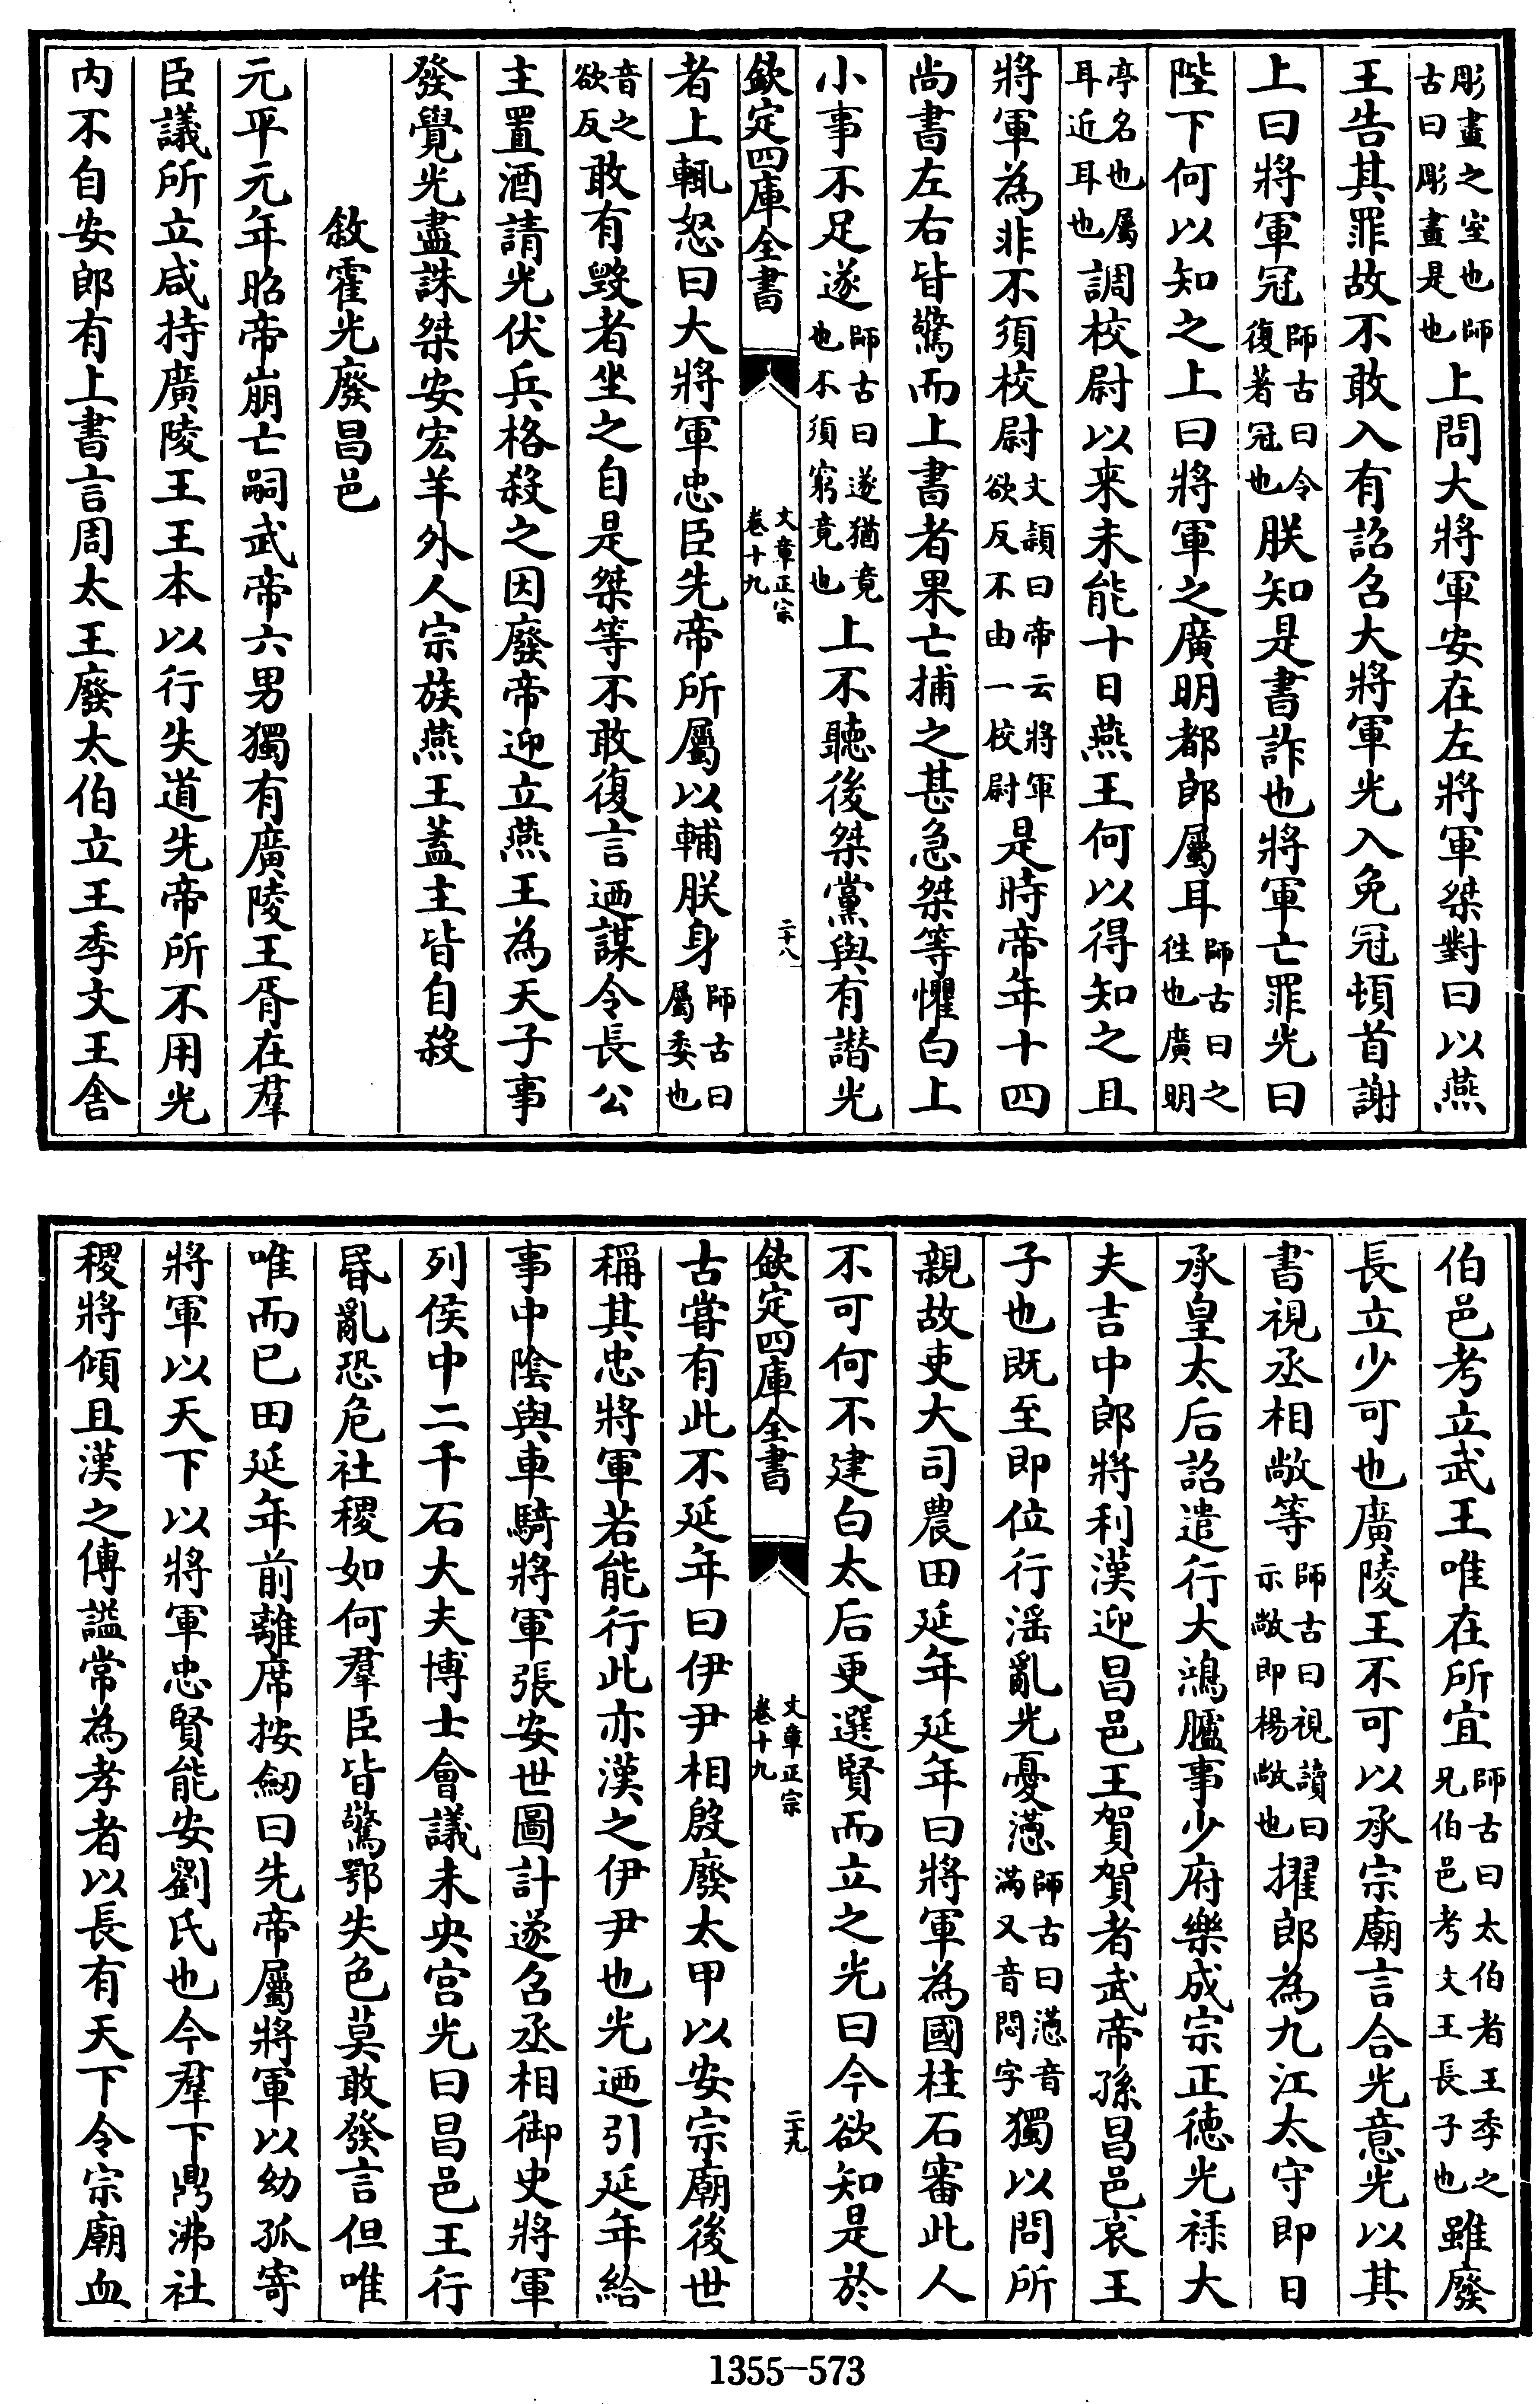 彫畫之室也師古曰彫畫是也上問大將軍安在左將軍桀對曰以燕
王告其罪故不敢入有詔召大將軍光入免冠頓首謝
上曰將軍冠師古曰令復著冠也朕知是書詐也將軍亡罪光曰
陛下何以知之上曰將軍之廣明都郎屬耳師古曰之徃也廣明
亭名也屬耳近耳也調校尉以来未能十日燕王何以得知之且
將軍為非不須校尉文頴曰帝云將軍欲反不由一校尉是時帝年十四
尚書左右皆驚而上書者果亡捕之甚急桀等懼白上
小事不足遂師古曰遂猶竟也不須窮竟也上不聽後桀黨與有譖光
欽定四庫全書
文章正宗
卷十九
二十八
者上輒怒曰大將軍忠臣先帝所屬以輔朕身師古曰屬委也
音之欲反敢有毁者坐之自是桀等不敢復言迺謀令長公
主置酒請光伏兵格殺之因廢帝迎立燕王為天子事
發覺光盡誅桀安宏羊外人宗族燕王蓋主皆自殺
敘霍光廢昌邑
元平元年昭帝崩亡嗣武帝六男獨有廣陵王胥在羣
臣議所立咸持廣陵王王本以行失道先帝所不用光
内不自安郎有上書言周太王廢太伯立王季文王舍
伯邑考立武王唯在所宜師古曰太伯者王季之兄伯邑考文王長子也雖廢
長立少可也廣陵王不可以承宗廟言合光意光以其
書視丞相敞等師古曰視讀曰示敞即楊敞也擢郎為九江太守即日
承皇太后詔遣行大鴻臚事少府樂成宗正徳光禄大
夫吉中郎將利漢迎昌邑王賀賀者武帝孫昌邑哀王
子也既至即位行淫亂光憂懣師古曰懣音滿又音悶字獨以問所
親故吏大司農田延年延年曰將軍為國柱石審此人
不可何不建白太后更選賢而立之光曰今欲知是於
欽定四庫全書
文章正宗
卷十九
二十九
古嘗有此不延年曰伊尹相殷廢太甲以安宗廟後世
稱其忠將軍若能行此亦漢之伊尹也光迺引延年給
事中陰與車騎將軍張安世圖計遂召丞相御史將軍
列侯中二千石大夫博士會議未央宫光曰昌邑王行
昬亂恐危社稷如何羣臣皆驚鄂失色莫敢發言但唯
唯而已田延年前離席按劒曰先帝屬將軍以幼孤寄
將軍以天下以將軍忠賢能安劉氏也今羣下鼎沸社
稷將傾且漢之傳諡常為孝者以長有天下令宗廟血
1355-573